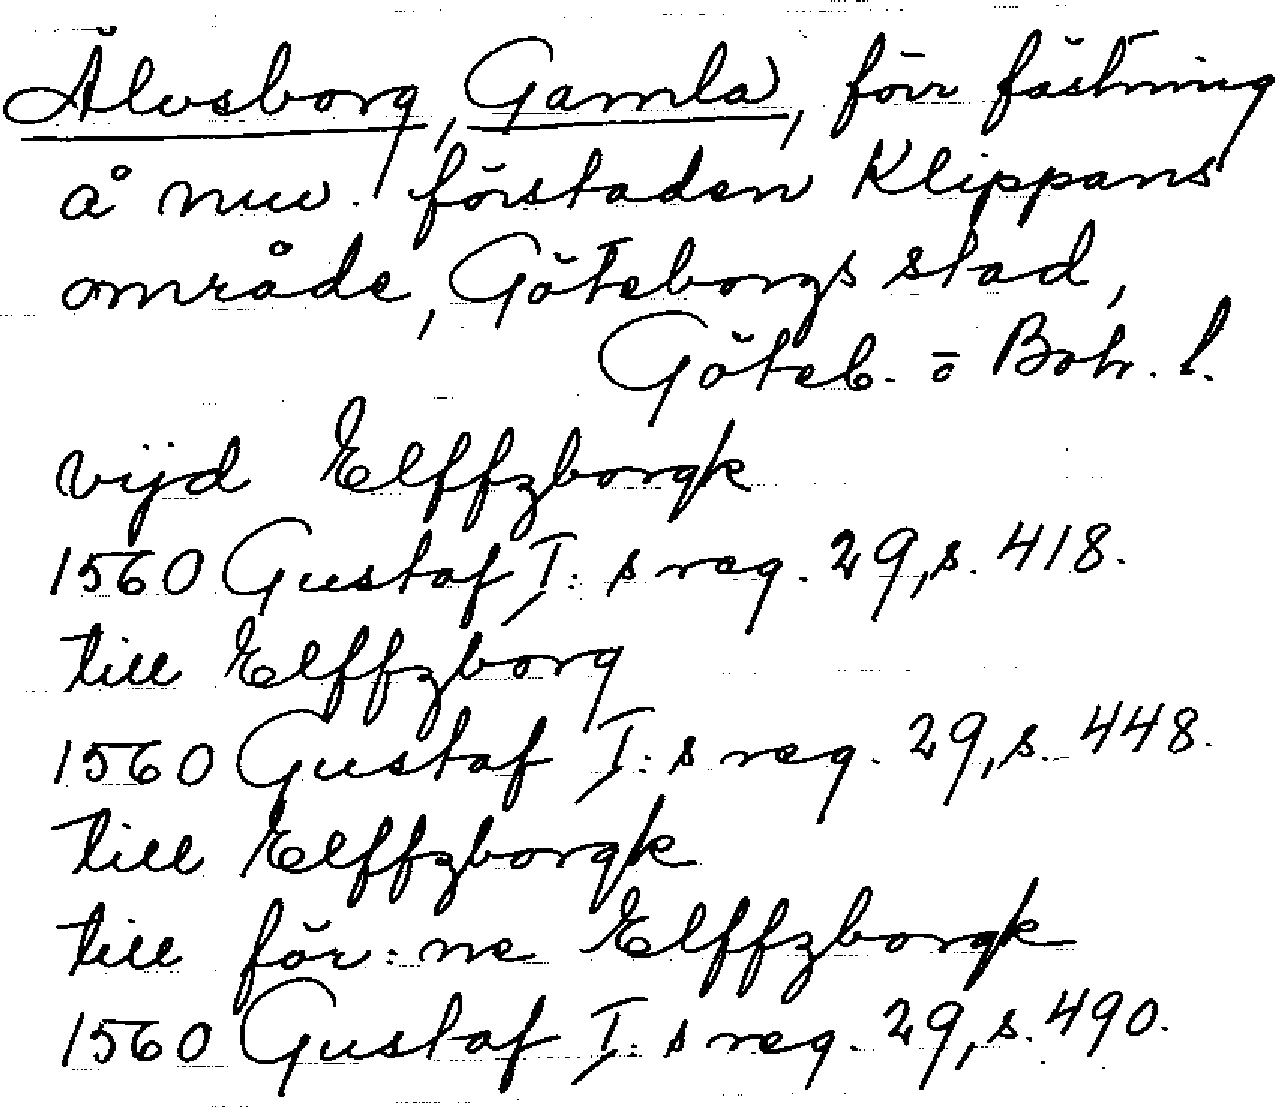 Älvsborg, Gamla, förr fästning
å nuv. förstaden Klippans
område, Göteborgs stad,
Göteb. o Boh. l.
vijd Elffzborgk
1560 Gustaf I: s reg. 29, s. 418.
till Elffzborg
1560 Gustaf I: s reg. 29, s. 448.
till Elffzborgk
till för: ne Elffzborgk
1560 Gustaf I: s reg. 29, s. 490.